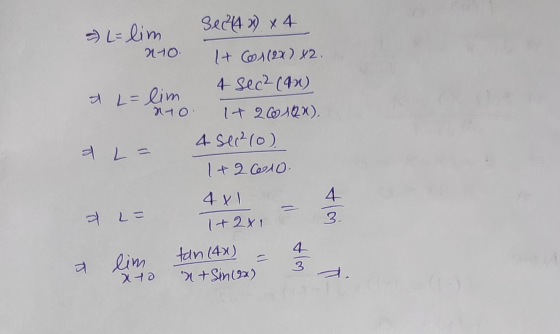 ⇒ L = lim x→0 (Sec²(4x) × 4) / (1 + Cos(2x) × 2.)
⇒ L = lim x→0. (4 Sec²(4x)) / (1 + 2 Cos(2x).)
⇒ L = (4 Sec²(0)) / (1 + 2 Cos 0.)
⇒ L = (4 × 1) / (1 + 2 × 1) = 4/3.
⇒ lim x→0 tan(4x) / (x + Sin(2x)) = 4/3 ⇒.